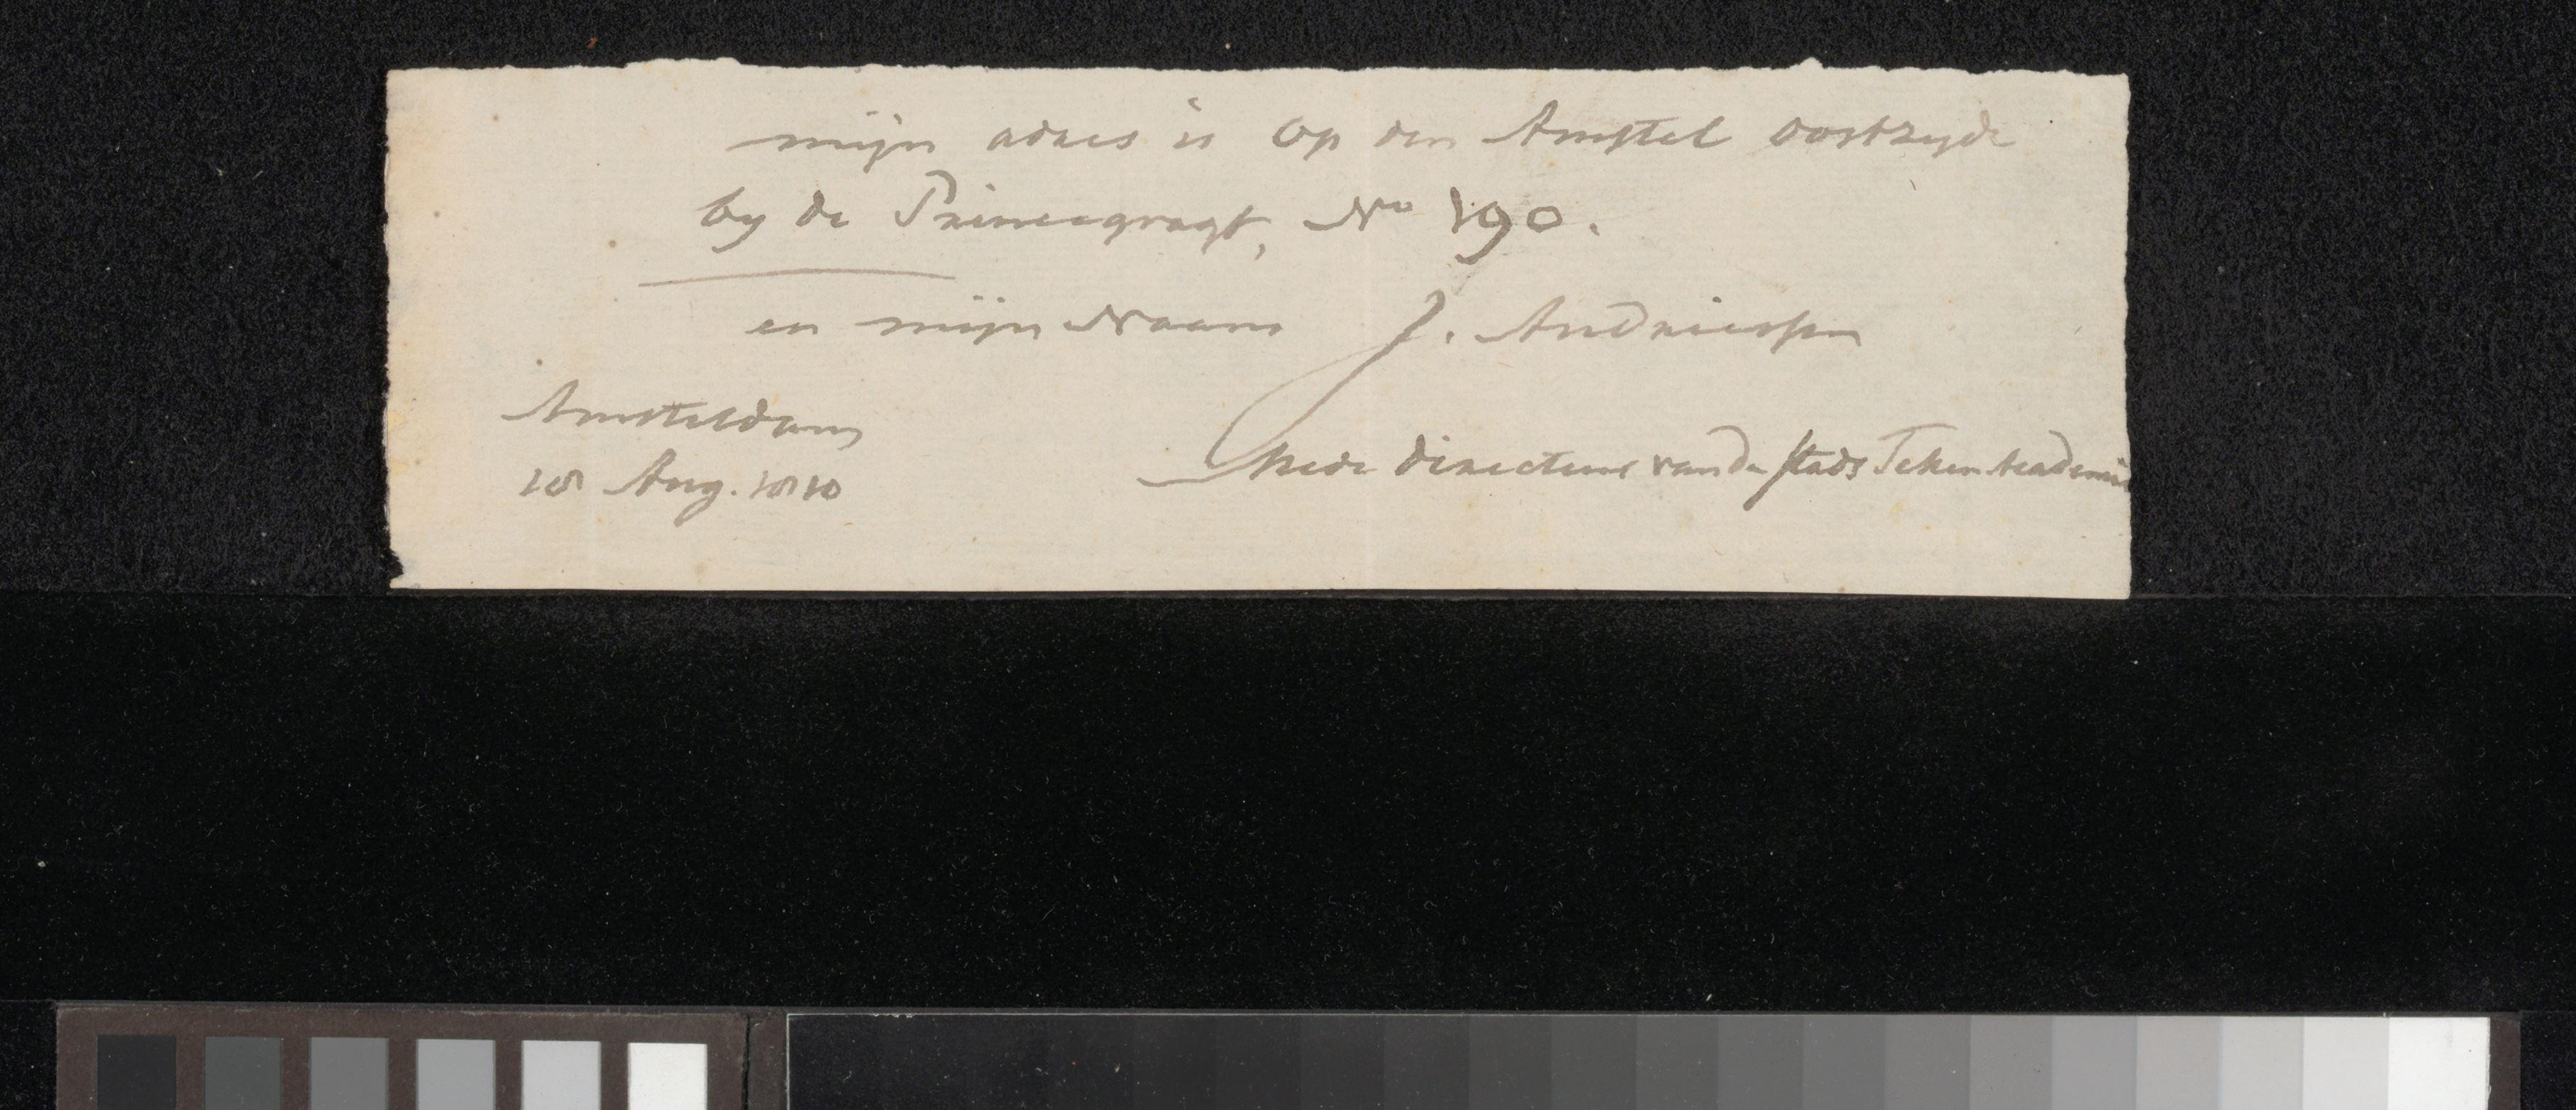 mijn adres is op den Amstel oostzyde
by de Prinsegragt, No 190.
en mijn Naam J. Andriessen
Amsteldam
18 Aug. 1810
Mede directeur van de stads Teken Academie